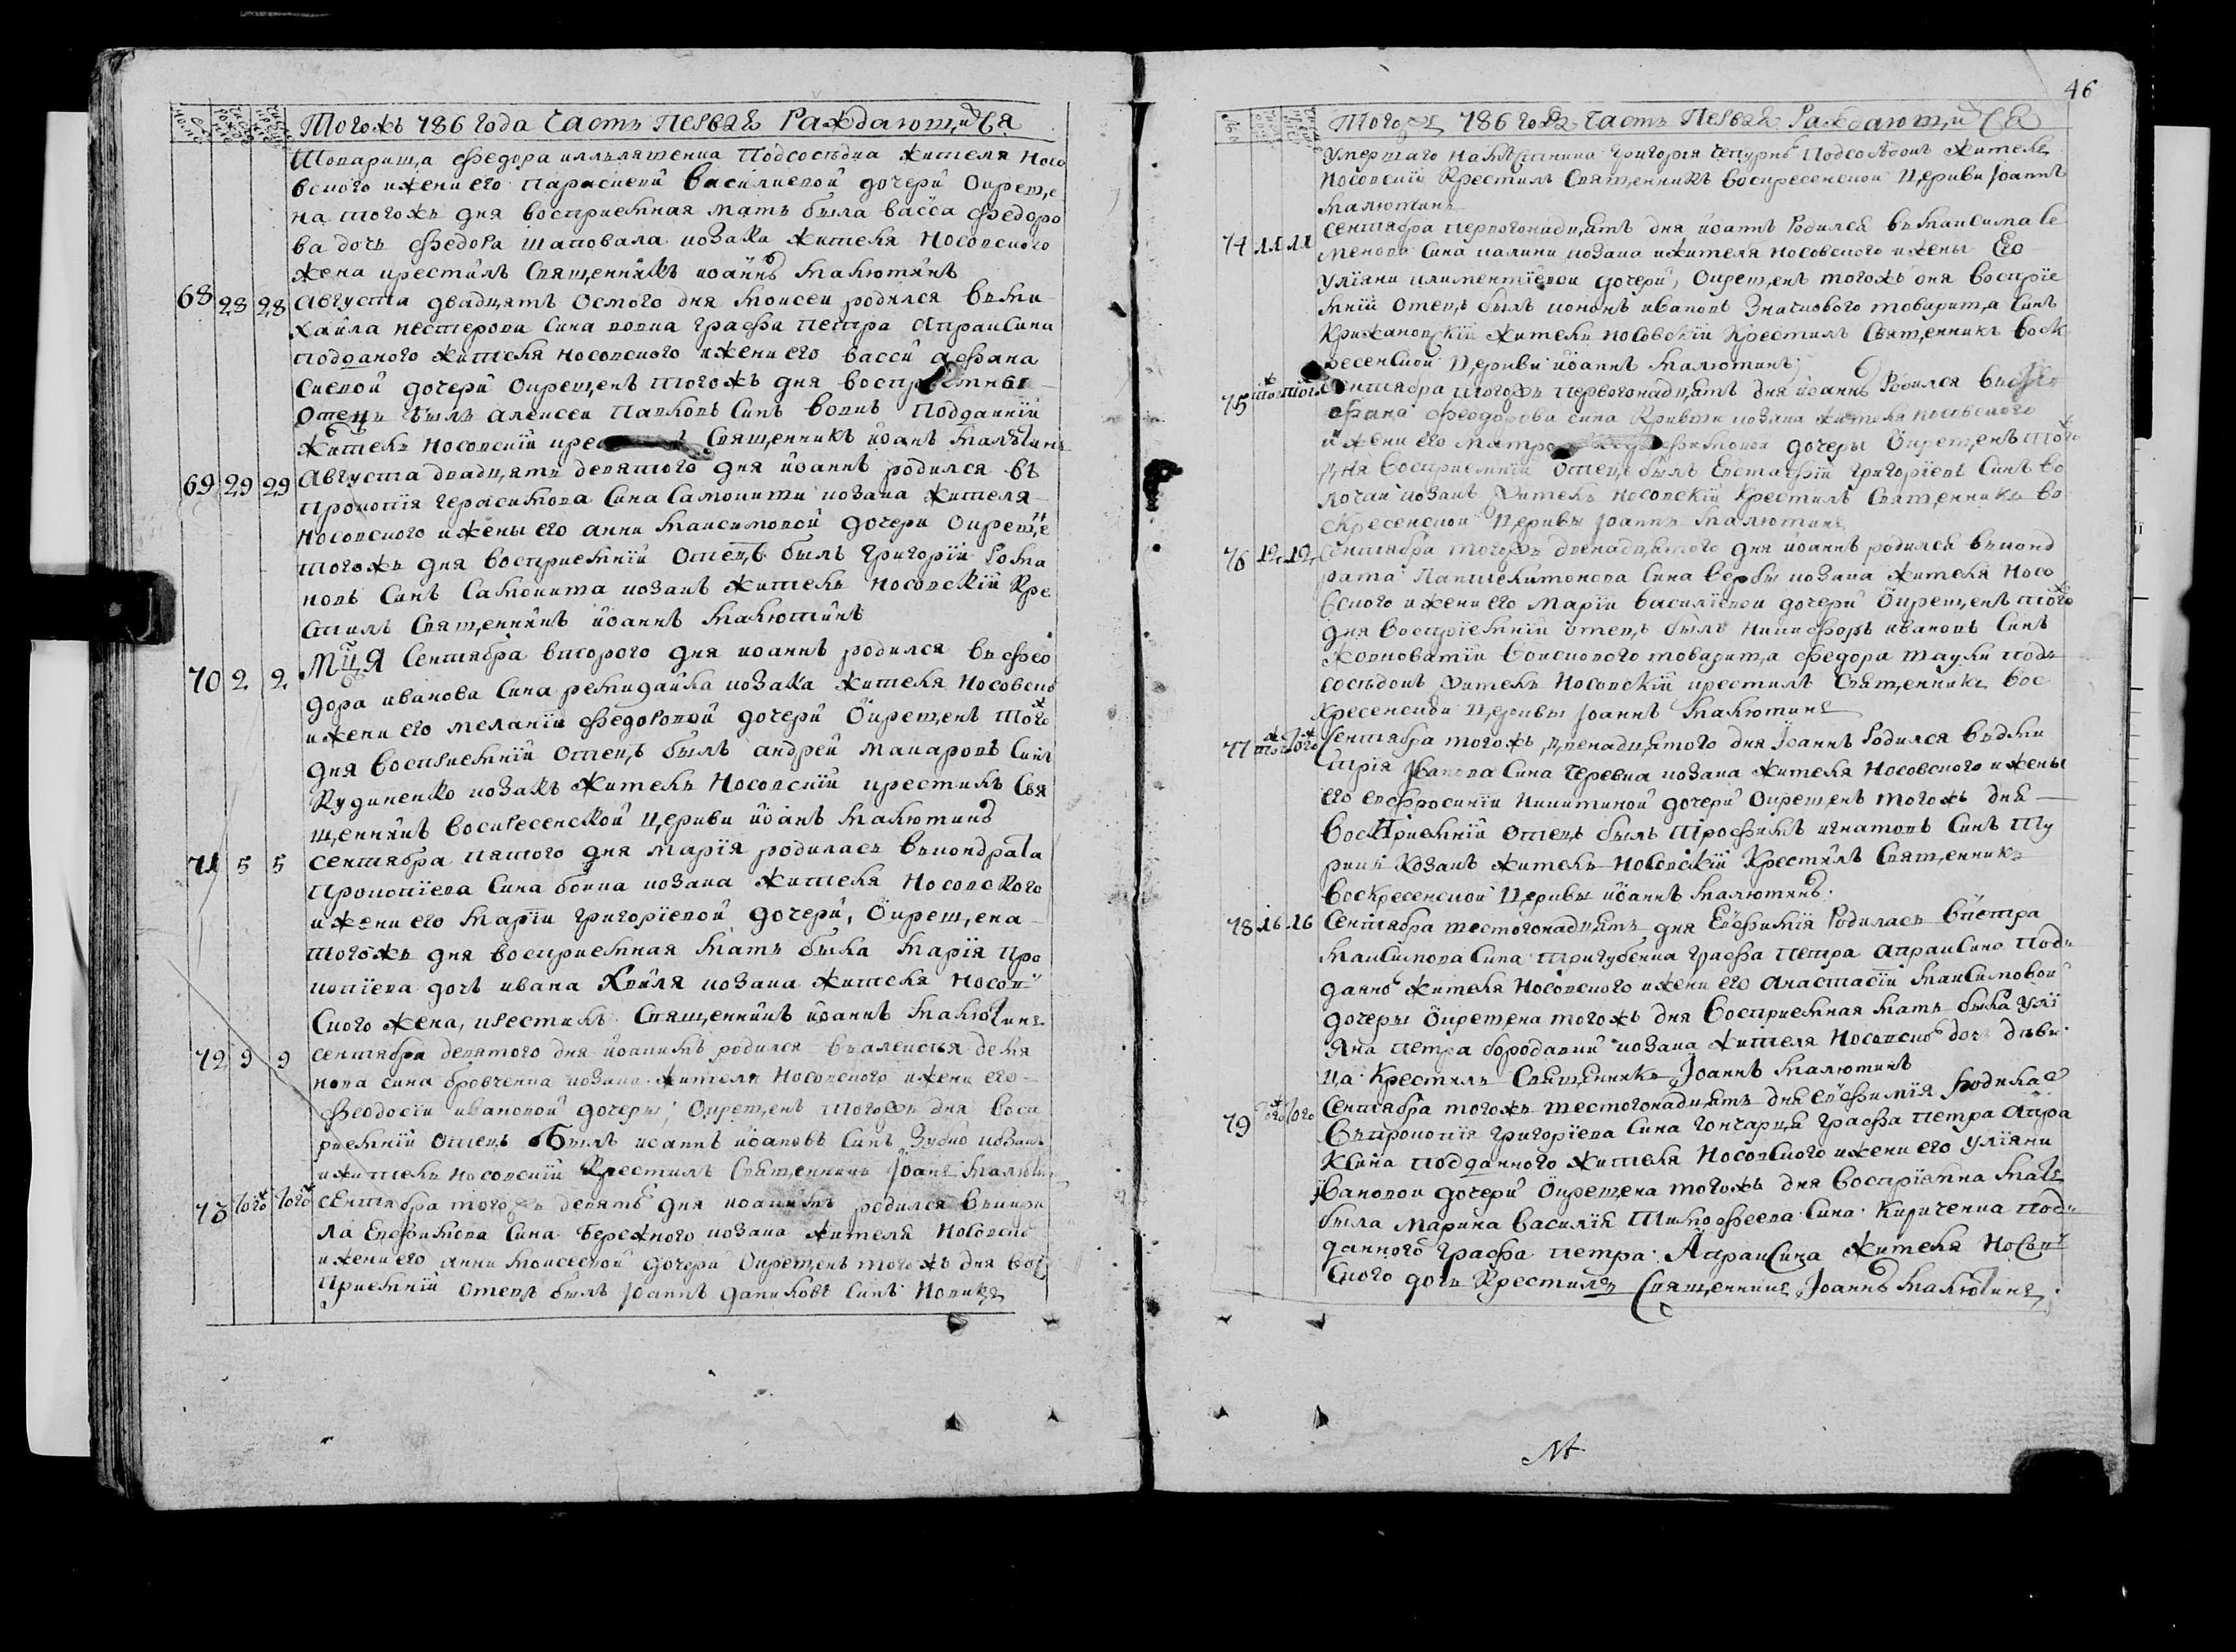 Тогожъ 786 года Часть Первая Раждающихся
Товарища Федора иллляшенка Подсоседка жителя Носо
вского и жени его Параскевӥ василиевой дочерӥ Окреще
на тогожъ дня восприемная мать была васса Федоро
ва дочь Федора шаповала козака жителя Носовского
жена крестилъ Священникъ иоаннъ Малютинъ
68 28 28 Августа двадцять Осмого дня Моисеи родился въ ми
хаила нестерова сина вовка Графа Петра Апраксина
подданого жителя носовского и жени его васси афана
сиевой дочерӥ Окрещенъ тогожъ дня восприемны
Отецъ былъ алексеи Павловъ Синъ вовкъ Подданнӥ
житель Носовскиӥ Священникъ иоанъ Малютинъ
69 29 29 Августа двадцять девятого дня иоаннъ родился въ
прокопія Герасимова Сина Самокити козака жителя
Носовского и жены его анни Максимовой дочери Окреще
тогожъ дня восприемнӥ Отецъ былъ Григориӥ Рома
новъ Синъ Самокита козакъ житель Носовскӥ Кре
стилъ Священникъ иоаннъ Малютинъ
70 2 2 Мця Сентября второго дня иоаннъ родился въ Фео
дора иванова Сина ремидаика козака жителя Носовско
и жени его мелании Федоровой дочерӥ Окрещенъ того
дня восприемнӥ Отецъ былъ андреи Макаровъ Синъ
Кудиненко козакъ житель Носовскиӥ крестилъ Свя
щенникъ воскресенской Церкви иоанъ Малютинъ
71 5 5 Сентября пятого дня Мария родилась въ кондрата
Прокопиева Сина бойка козака жителя Носовского
и жени его Марии григориевой дочерӥ, Окрещена
тогожъ дня восприемная мать была Мария Про
копиева дочь ивана Хвиля козака жителя Носов
ского жена, крестилъ Священникъ иоаннъ Малютинъ
72 9 9 Сентября девятого дня иоакимъ родился въ алексея демя
нова сина бровченка козака жителя Носовского и жени его
Феодосии ивановой дочеры, Окрещенъ тогожъ дня воси
риемнӥ Отецъ былъ иоаннъ иоановъ Синъ козакъ
и житель носовскиӥ Крестилъ Священникъ иоанъ Малютин
73 того того Сентября тогожъ девять дня иоакимъ родился въ кири
ла Евфимова Сина Бережного козака жителя Носовско
и жени его анни Моисеевой дочери Окрещенъ тогожъ дня вос
приемнӥ Отецъ былъ Иоаннъ даниловъ Синъ Новикъ
46
Тогожъ 786 года Часть Первая Раждающихся
Умершаго Григория Подсоседокъ житель
Носовскиӥ Крестилъ Священникъ воскресенской Церкви Иоаннъ
Малютинъ
74 11 11 Сентября первогонадцять дня иоанъ Родился въ Максима Се
менова Сина калини козака и жителя носовского и жены Его
Улияни климентиевой дочерӥ, Окрещенъ тогожъ дня восприе
мнӥ Отецъ былъ кононъ ивановъ Значкового товарища Синъ
Крижановскиӥ житель носовскиӥ Крестилъ Священникъ воск
ресенской Церкви иоаннъ Малютинъ
75 того того Сентября тогожъ первогонадцять дня иоаннъ Родился въ
Феодорова сина Кривши козака жителя носовского
и жени его дочеры Окрещенъ того
дня восприемнӥ Отецъ былъ Евстафиӥ Григориевъ Синъ во
лочаи козакъ житель носовскиӥ Крестилъ Священникъ во
скресенской Церквы Иоаннъ Малютинъ
76 12 12 Сентября тогожъ двенадцятого дня иоаннъ родился въ конд
рата Пантелимонова Сина вербы козака жителя Носо
вского и жени его Марии василиевой дочерӥ Окрещенъ того
дня восприемнӥ отецъ былъ никифоръ ивановъ Синъ
жовноватиӥ воискового товарища Федора шаули под
соседокъ житель Носовскиӥ крестилъ Священникъ вос
кресенской Церквы Иоаннъ Малютинъ
77 того того Сентября тогожъ двенадцятого дня Иоаннъ Родился въ дми
трия Иванова Сина Черевка козака жителя Носовского и жены
его евфросинии Никитиной дочерӥ Окрещенъ тогожъ дня
восприемнӥ Отецъ былъ трофимъ игнатовъ Синъ Ту
рикъ Козакъ житель Носовскиӥ Крестилъ Священникъ
воскресенской Церквы иоаннъ Малютинъ
78 16 16 Сентября шестогонадцять дня Евфимия Родилась въ петра
Максимова Сина Тригубенка Графа Петра Апраксина Под
данно жителя Носовского и жени его Анастасии Максимовой
дочеры Окрещена тогожъ дня восприемная мать была Ули
яна петра бородавки козака жителя Носовско дочь деви
ца Крестилъ Священникъ Иоаннъ Малютинъ
79 того того Сентября тогожъ шестогонадцять дня Евфимия Родилас
въ прокопия Григориева Сина Гончарця Графа Петра Апра
ксина подданного жителя Носовского и жени его улияни
Ивановой дочерӥ Окрещена тогожъ дня восприемна мать
была Марина василия Тимофеева Сина Кириченка под
данного Графа Петра Апраксина жителя Носов
ского дочь Крестилъ Священникъ Иоаннъ Малютинъ